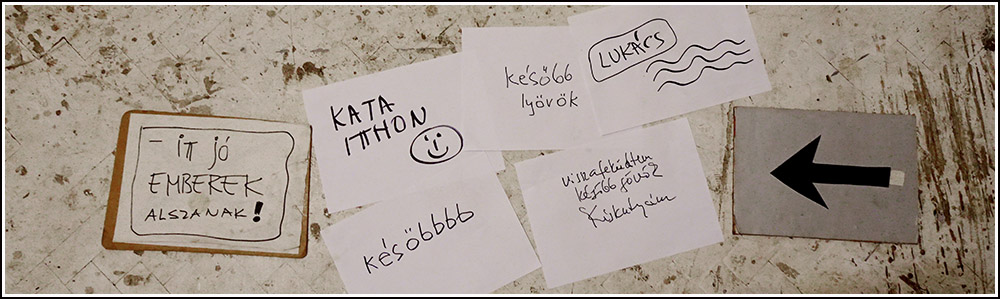 - ITT JÓ
EMBEREK
ALSZANAK!
KATA
ITTHON
később
lyövök
LUKÁCS
későbbbb
visszafeküdtem
később jövök
Kiskutyám